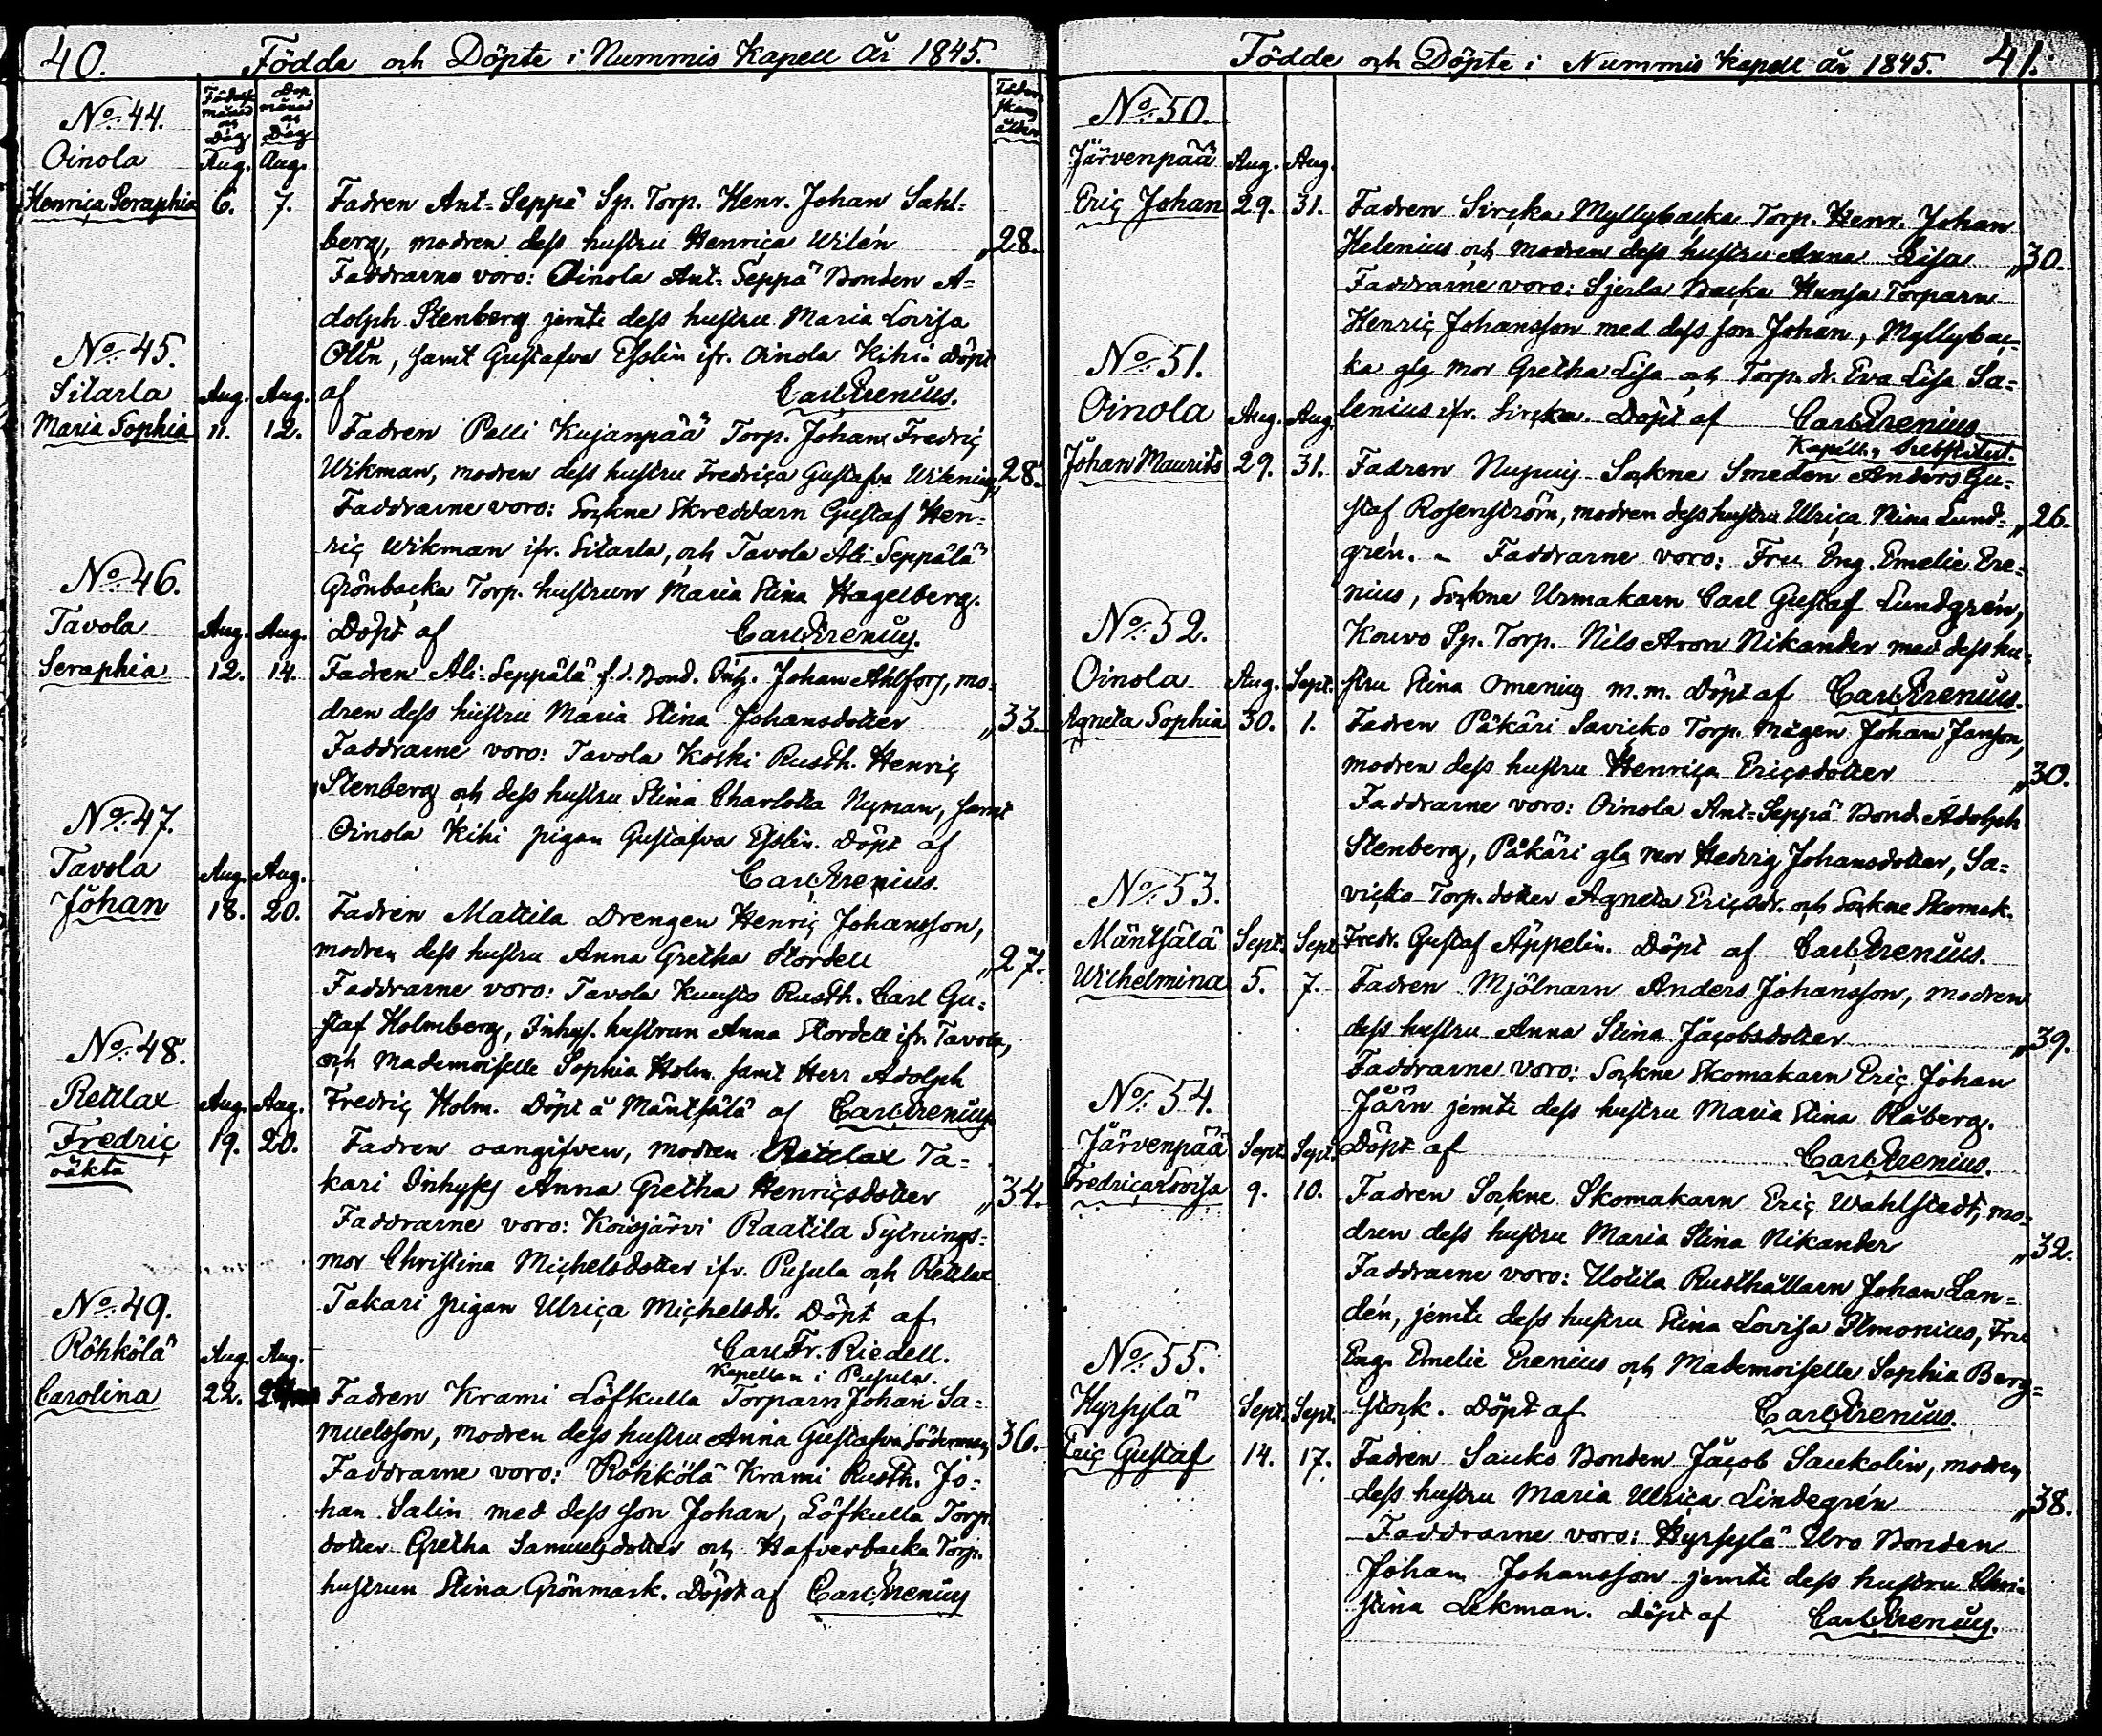 40. Födde och Döpte i Nummis Kapell År 1845.
Födelse månad och Dag
Dop månad och Dag
Föderskans ålder
No. 44.
Oinola Aug. Aug.
Henrica Seraphia 6. 7. Fadren Ant-Seppä Sp. Torp. Henr. Johan Sahl=
berg, modren dess hustru Henrica Wilén „28.
Faddrarne voro: Oinola Ant-Seppä Bonden A=
dolph Stenberg jemte dess hustru Maria Lovisa
Olin, samt Gustafva Esslin ifr. Oinola Kihi. Döpt
af Carl Erenius.
No. 45.
Sitarla Aug. Aug.
Maria Sophia 11. 12. Fadren Pelli Kujanpää Torp. Johan Fredric
Wikman, modren dess hustru Fredrica Gustafva Witenius „28.
Faddrarne voro: Sockne Skreddarn Gustaf Hen=
ric Wikman ifr. Sitarla, och Tavola Ali-Seppälä
Grönbacka Torp. hustrun Maria Stina Hagelberg.
Döpt af Carl Erenius.
No. 46.
Tavola Aug. Aug.
Seraphia 12. 14. Fadren Ali-Seppälä f.d. Bond. Inh. Johan Ahlfors, mo=
dren dess hustru Maria Stina Johansdotter „33.
Faddrarne voro: Tavola Koski Rusth. Henric
Stenberg och dess hustru Stina Charlotta Nyman, samt
Oinola Kihi pigan Gustafva Esslin. Döpt af
Carl Erenius.
No. 47.
Tavola Aug. Aug.
Johan 18. 20. Fadren Mattila Drengen Henric Johansson,
modren dess hustru Anna Gretha Stordell „27.
Faddrarne voro: Tavola Rusth. Carl Gu=
staf Holmberg, Inhys. hustrun Anna Stordell ifr. Tavola,
och Mademoiselle Sophia Holm samt Herr Adolph
Fredric Holm. Döpt å Mäntsälä af Carl Erenius.
No. 48.
Rettlax Aug. Aug.
Fredric 19. 20. Fadren oangifven, modren Rettlax Ta=
oäkta
kari Inhyses Anna Gretha Henricsdotter „34.
Faddrarne voro: Koisjärvi Raatila Sytnings=
mor Christina Michelsdotter ifr. Pusula och Rettlax
Takari pigan Ulrica Michelsdr. Döpt af
Carl Fr. Riedell.
Kapellan i Pusula.
No. 49.
Röhkölä Aug. Aug.
Carolina 22. 24. Fadren Krami Löfkulla Torparn Johan Sa=
muelsson, modren dess hustru Anna Gustafva Söderman „36.
Faddrarne voro: Röhkölä Krami Rusth. Jo=
han Salin med dess son Johan, Löfkulla Torp.
dotter Gretha Samuelsdotter och Hafverbacka Torp.
hustrun Stina Grönmark. Döpt af Carl Erenius
Födde och Döpte i Nummis Kapell År 1845. 41.
No. 50.
Järvenpää Aug. Aug.
Eric Johan 29. 31. Fadren Sircka Myllybacka Torp. Henr. Johan
Helenius och modren dess hustru Anna Lisa „30.
Faddrarne voro: Sjerla Backa Hansa Torparn
Henric Johansson med dess son Johan, Myllybac=
ka gla mor Gretha Lisa och Torp. dr. Eva Lisa Sa=
lenius ifr. Sircka. Döpt af Carl Erenius
Kapell. Substitut.
No. 51.
Oinola Aug. Aug.
Johan Maurits 29. 31. Fadren Sockne Smeden Anders Gu=
staf Rosenström, modren dess hustru Ulrica Mina Lund= „26.
grén. – Faddrarne voro: Fru Eng. Emelie Ere=
nius, Sockne Urmakarn Carl Gustaf Lundgrén,
Kouvo Sp. Torp. Nils Aron Nikander med dess hu=
stru Stina Omenius m.m. Döpt af Carl Erenius.
No. 52.
Oinola Aug. Sept.
Agneta Sophia 30. 1. Fadren Päkäri Savicko Torp. mågen Johan Janson,
modren dess hustru Henrica Ericsdotter „30.
Faddrarne voro: Oinola Ant-Seppä Bond. Adolph
Stenberg, Päkäri gla mor Hedvig Johansdotter, Sa=
vicko Torp. dotter Agneta Ericsdr. och Sockne Skomak.
Fredr. Gustaf Äppelin. Döpt af Carl Erenius.
No. 53.
Mäntsälä Sept. Sept.
Wilhelmina 5. 7. Fadren Mjölnarn Anders Johansson, modren
dess hustru Anna Stina Jacobsdotter „39.
Faddrarne voro: Sockne Skomakarn Eric Johan
Järn jemte dess hustru Maria Stina Råberg.
Döpt af Carl Erenius.
No. 54.
Järvenpää Sept. Sept.
Fredrica Lovisa 9. 10. Fadren Sockne Skomakarn Eric Wahlstedt, mo=
dren dess hustru Maria Stina Nikander „32.
Faddrarne voro: Uotila Rusthållarn Johan Lan=
dén, jemte dess hustru Stina Lovisa Ilmonius, Fru
Eng. Emelie Erenius och Mademoiselle Sophia Berg=
stock. Döpt af Carl Erenius.
No. 55.
Hyrsylä Sept. Sept.
Eric Gustaf 14. 17. Fadren Sauko Bonden Jacob Saukolin, modren
dess hustru Maria Ulrica Lindegrén „38.
Faddrarne voro: Hyrsylä Uro Bonden
Johan Johansson jemte dess hustru Chri=
stina Lekman. Döpt af Carl Erenius.